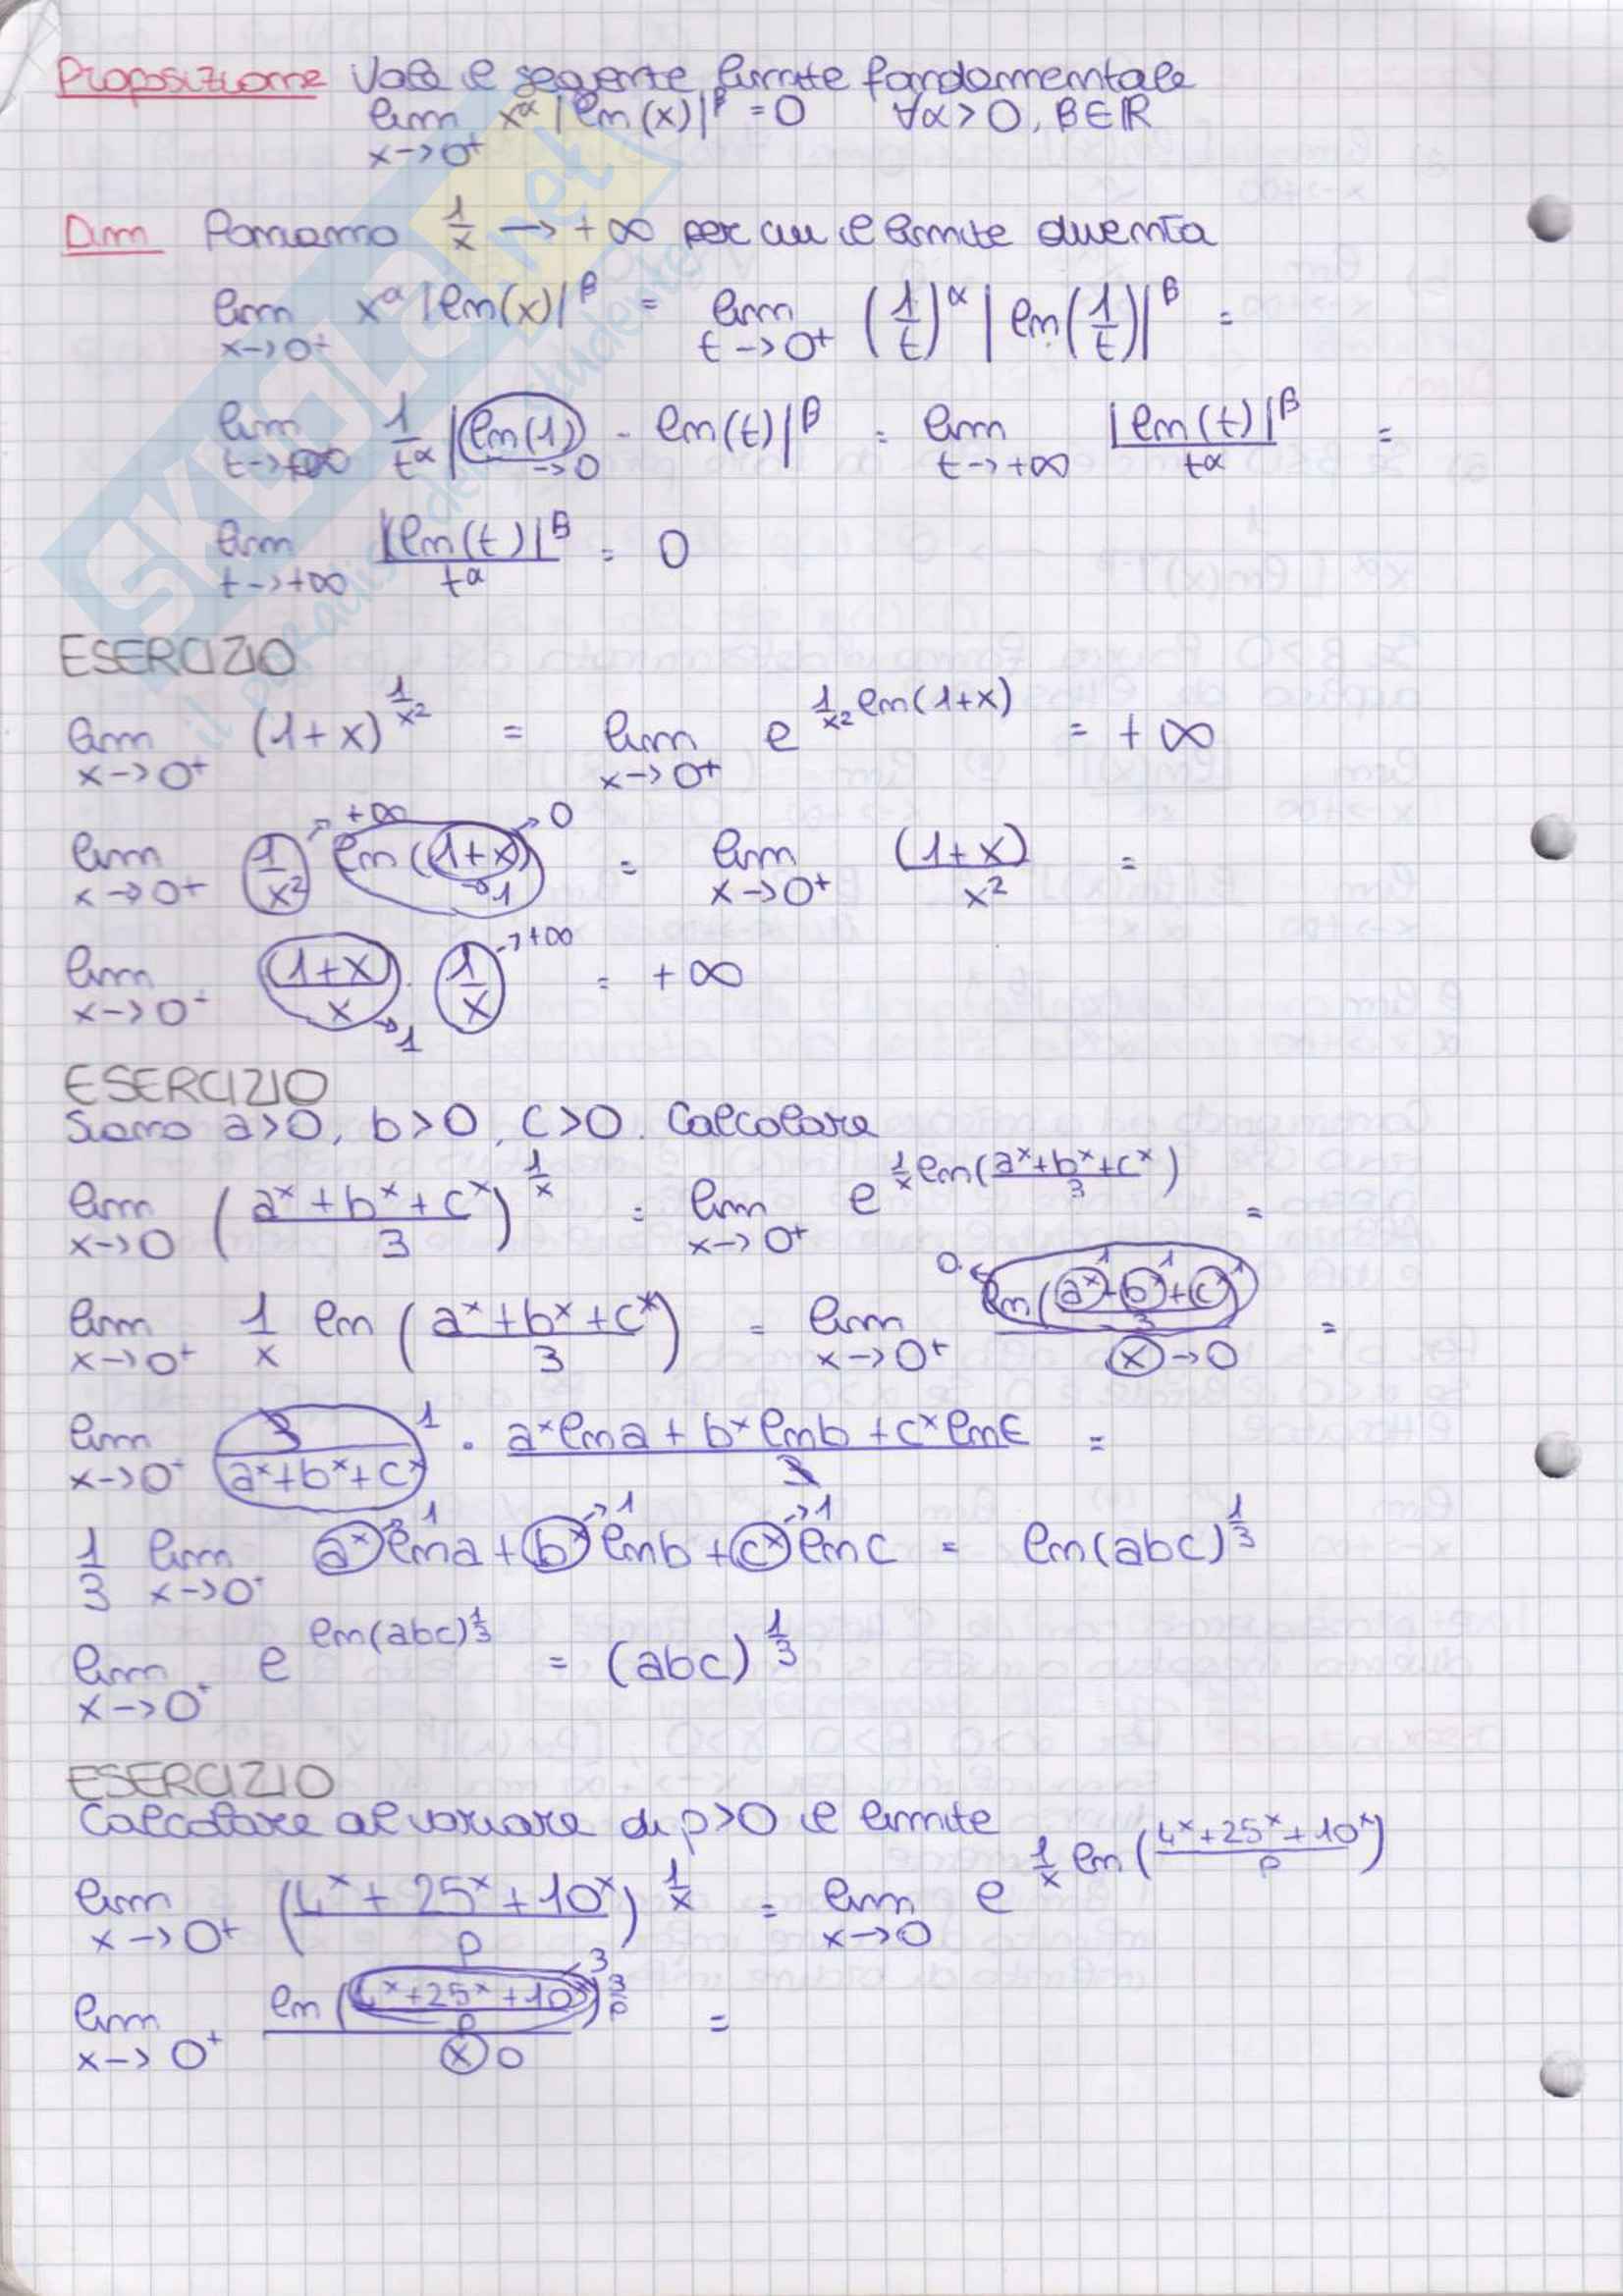 Proposizione Vale il seguente limite fondamentale
lim x→0⁺ x^α |ln(x)|^β = 0 ∀α > 0, β∈ℝ
Dim Poniamo 1/x → +∞ per cui il limite diventa
lim x→0⁺ x^α |ln(x)|^β = lim t→0⁺ (1/t)^α |ln(1/t)|^β =
lim t→+∞ 1/t^α |ln(1) →0 - ln(t)|^β = lim t→+∞ |ln(t)|^β / t^α =
lim t→+∞ |ln(t)|^β / t^α = 0
ESERCIZIO
lim x→0⁺ (1+x)^(1/x²) = lim x→0⁺ e^(1/x² ln(1+x)) = +∞
lim x→0⁺ 1/x² →+∞ ln(1+x) →1 →0 = lim x→0⁺ (1+x)/x² =
lim x→0⁺ (1+x)/x →1 · 1/x →+∞ = +∞
ESERCIZIO
Siano a>0, b>0, c>0. Calcolare
lim x→0 ((a^x + b^x + c^x)/3)^(1/x) = lim x→0⁺ e^(1/x ln((a^x+b^x+c^x)/3)) =
lim x→0⁺ 1/x ln((a^x+b^x+c^x)/3) = lim x→0⁺ 0← ln((a^x 1 + b^x 1 + c^x 1)/3) / x →0 =
lim x→0⁺ 3/(a^x+b^x+c^x) 1 · (a^x ln a + b^x ln b + c^x ln c)/3 =
1/3 lim x→0⁺ a^x →1 ln a + b^x →1 ln b + c^x →1 ln c = ln(abc)^(1/3)
lim x→0⁺ e^(ln(abc)^(1/3)) = (abc)^(1/3)
ESERCIZIO
Calcolare al variare di p>0 il limite
lim x→0⁺ ((4^x + 25^x + 10^x)/p)^(1/x) = lim x→0 e^(1/x ln((4^x+25^x+10^x)/p))
lim x→0⁺ ln((4^x+25^x+10^x)/p) 3 3/p / x 0 =
SKUOLA.net
il paradiso dello studente